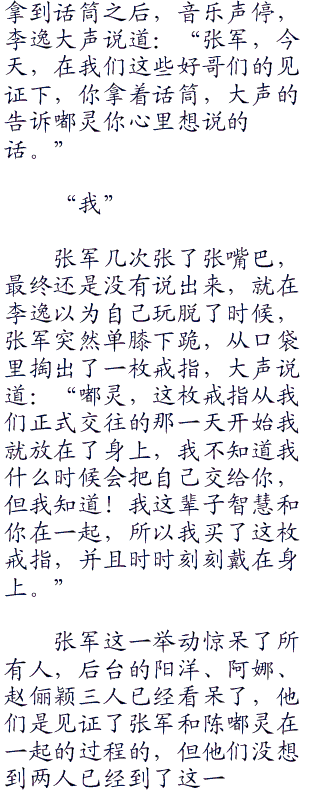 拿到话筒之后，音乐声停，
李逸大声说道：“张军，今
天，在我们这些好哥们的见
证下，你拿着话筒，大声的
告诉嘟灵你心里想说的
话。”
“我”
张军几次张了张嘴巴，
最终还是没有说出来，就在
李逸以为自己玩脱了时候，
张军突然单膝下跪，从口袋
里掏出了一枚戒指，大声说
道：“嘟灵，这枚戒指从我
们正式交往的那一天开始我
就放在了身上，我不知道我
什么时候会把自己交给你，
但我知道！我这辈子智慧和
你在一起，所以我买了这枚
戒指，并且时时刻刻戴在身
上。”
张军这一举动惊呆了所
有人，后台的阳洋、阿娜、
赵俪颖三人已经看呆了，他
们是见证了张军和陈嘟灵在
一起的过程的，但他们没想
到两人已经到了这一